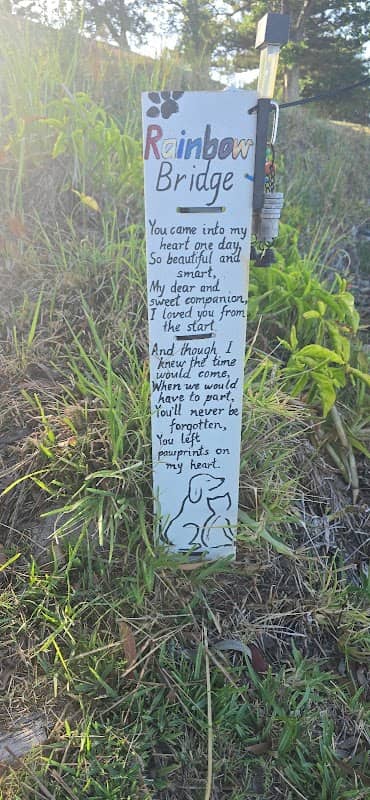 Rainbow
Bridge
You came into my
heart one day,
So beautiful and
smart,
My dear and
sweet companion,
I loved you from
the start.
And though I
knew the time
would come,
When we would
have to part,
You'll never be
forgotten,
You left
pawprints on
my heart.